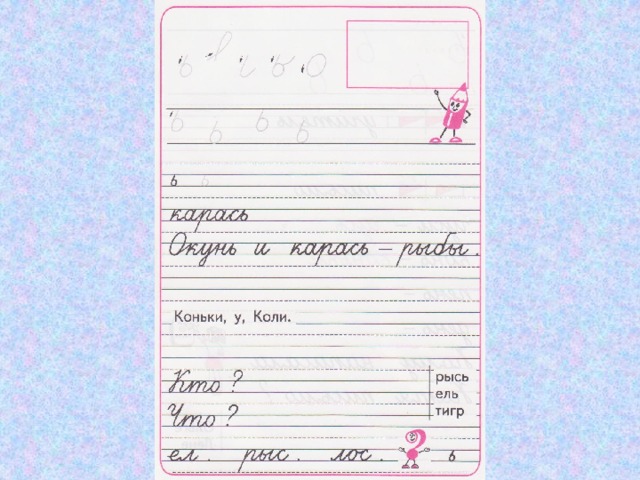 ь
карась
Окунь и карась – рыбы.
Коньки, у, Коли.
Кто? рысь
ель
Что? тигр
ел . рыс . лос . ь